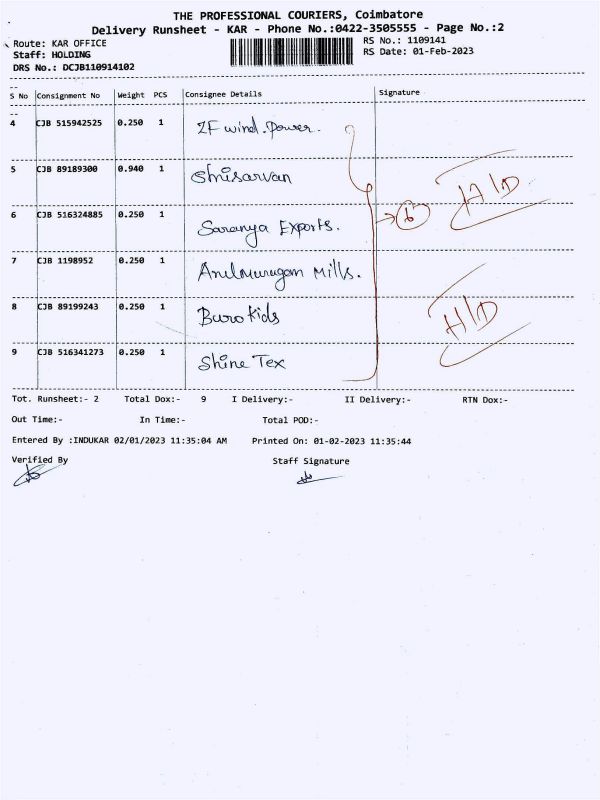 THE PROFESSIONAL COURIERS, Coimbatore
Delivery Runsheet - KAR - Phone No.:0422-3505555 - Page No.:2
Route: KAR OFFICE RS No.: 1109141
Staff: HOLDING RS Date: 01-Feb-2023
DRS No.: DCJB110914102
S No Consignment No Weight PCS Consignee Details Signature
4 CJB 515942525 0.250 1 ZF wind.Power.
5 CJB 89189300 0.940 1 Shrisarvan
6 CJB 516324885 0.250 1 Saranya Exports.
7 CJB 1198952 0.250 1 Arulmurugan Mills.
8 CJB 89199243 0.250 1 Buro Kids
9 CJB 516341273 0.250 1 Shine Tex
6
H/D
H/D
Tot. Runsheet:- 2 Total Dox:- 9 I Delivery:- II Delivery:- RTN Dox:-
Out Time:- In Time:- Total POD:-
Entered By :INDUKAR 02/01/2023 11:35:04 AM Printed On: 01-02-2023 11:35:44
Verified By Staff Signature